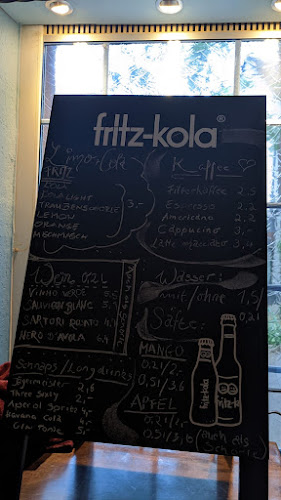 fritz-kola®
Limo/Cola
FRITZ
COLA
COLA LIGHT
TRAUBENSCHORLE 3,-
LEMON
ORANGE
MISCHMASCH
Kaffee
Filterkaffee 2,5
Espresso 2,2
Americano 2,2
Cappuccino 3,-
Latte macchiato 3,4
Wein 0,2l
VINHO VERDE
SAUVIGNON BLANC
NERO D'AVOLA
Wasser:
mit/ohne 1,5/
0,2l
Säfte:
MANGO
0,2l/2,-
0,5l/3,6
APFEL
0,2l/2,-
0,5l/3,6 (auch als
Schorle)
Schnaps/Longdrinks
Jägermeister 2,8
Three Sixty 2,-
Aperol Spritz
Havana Cola
Gin Tonic 5,-
fritz-kola
fritz-k